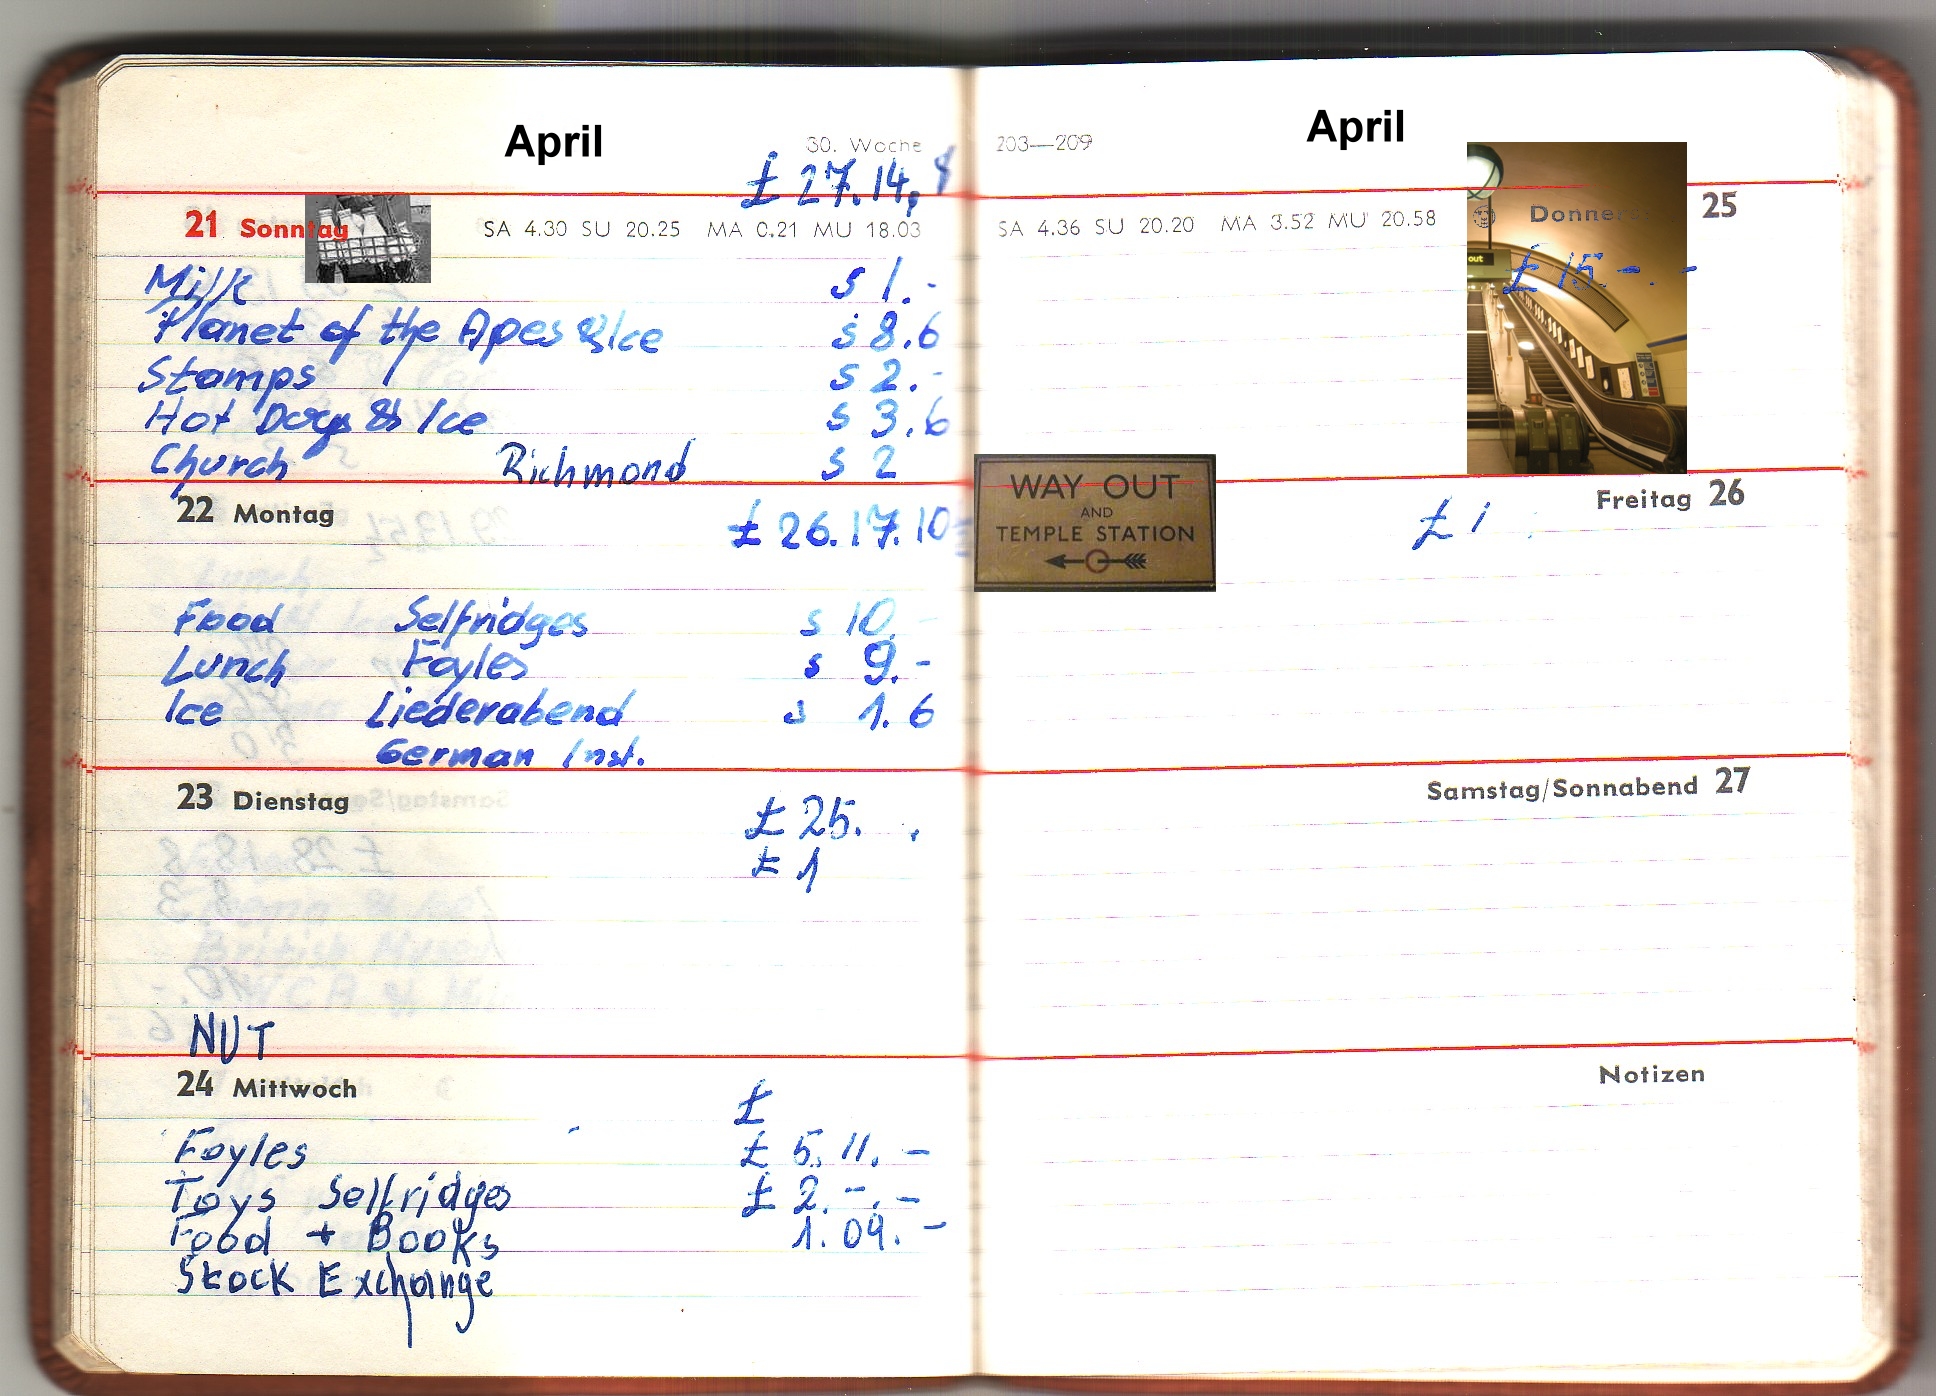 April
30. Woche
£ 27.14,
21 Sonntag
SA 4.30 SU 20.25 MA 0.21 MU 18.03
Milk s 1.-
Planet of the Apes & Ice s 8.6
Stamps s 2.-
Hot Dogs & Ice s 3.6
Church Richmond s 2
22 Montag £ 26.17.10
Food Selfridges s 10.-
Lunch Foyles s 9.-
Ice Liederabend s 1.6
German Inst.
23 Dienstag
£ 25. .
£ 1
NUT
24 Mittwoch
£
Foyles £ 5.11.-
Toys Selfridges £ 2.-.-
Food + Books 1.09.-
Stock Exchange
April
203—209
SA 4.36 SU 20.20 MA 3.52 MU 20.58
25
out
£ 15.-.-
WAY OUT
AND
TEMPLE STATION
Freitag 26
£ 1
Samstag/Sonnabend 27
Notizen